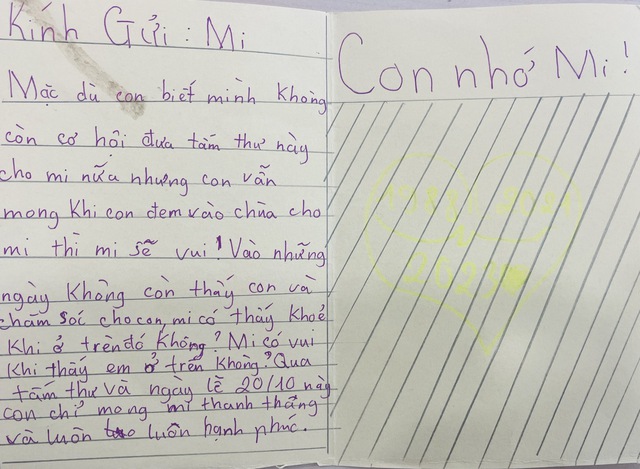 Kính Gửi : Mi
Mặc dù con biết mình không
còn cơ hội đưa tấm thư này
cho mi nữa nhưng con vẫn
mong khi con đem vào chùa cho
mi thì mi sẽ vui! Vào những
ngày không còn thấy con và
chăm sóc cho con, mi có thấy khoẻ
khi ở trên đó không? Mi có vui
khi thấy em ở trên không? Qua
tấm thư và ngày lễ 20/10 này
con chỉ mong mi thanh thãng
và luôn luôn hạnh phúc.
Con nhớ Mi!
2023